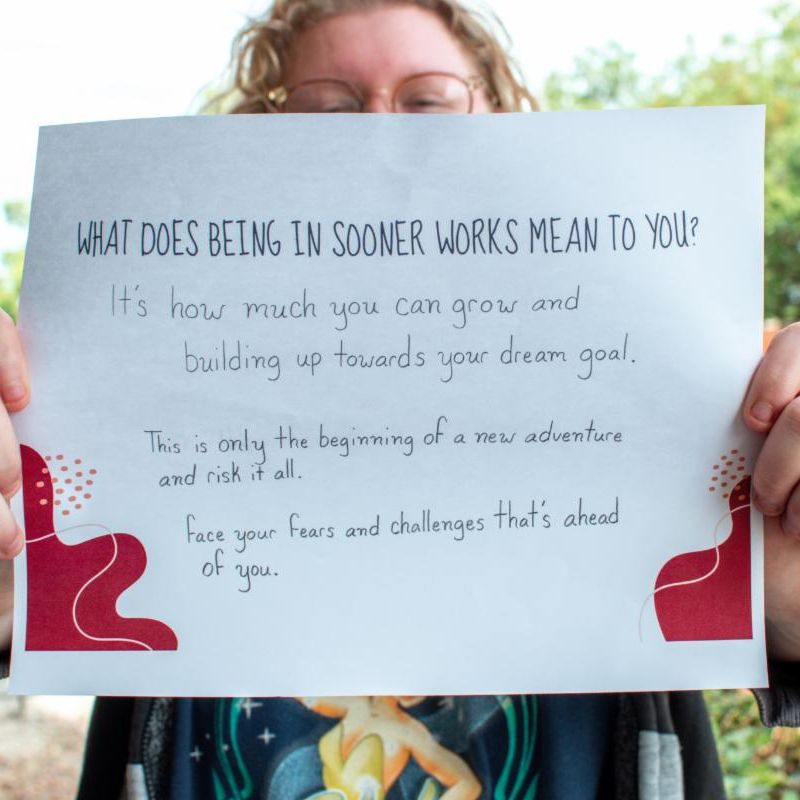 WHAT DOES BEING IN SOONER WORKS MEAN TO YOU?
It's how much you can grow and
building up towards your dream goal.
This is only the beginning of a new adventure
and risk it all.
Face your fears and challenges that's ahead
of you.